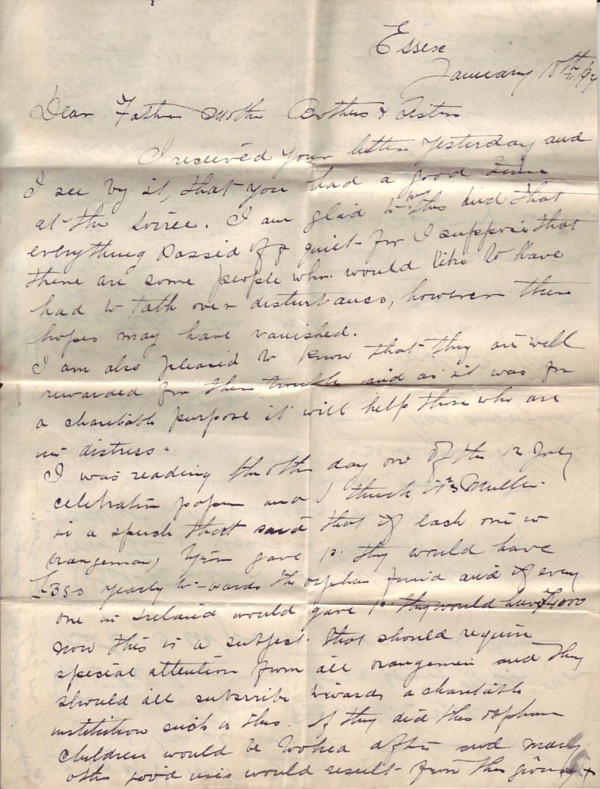 Essex
January 18th
Dear Father Mother Brothers & Sisters
I received your letter yesterday and
I see by it, that you had a good time
at the Soiree. I am glad to this and that
everything Passed off quiet for I suppose that
there are some people who would like to have
had to talk over disturbance, however there
hopes may have vanished.
I am also pleased to know that they are well
rewarded for their trouble and as it was for
a charitable purpose it will help those who are
in distress.
I was reading the other day one of the 12 July
celebration paper and I think it's
in a speech that said that if each one in
orangeman, gave 1s. they would have
£350 yearly to-wards the orphan fund and if every
one in Ireland would gave 1s they would have
now this is a subject that should require
special attention from all orangemen and they
should all subscribe towards a charitable
institution such as this. If they did this orphan
children would be looked after and many
other good uses would result from the giving